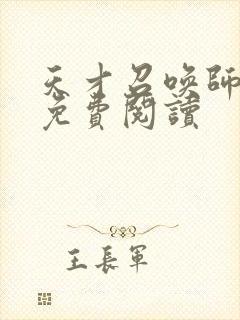 天才召喚師
免費閱讀
王長軍